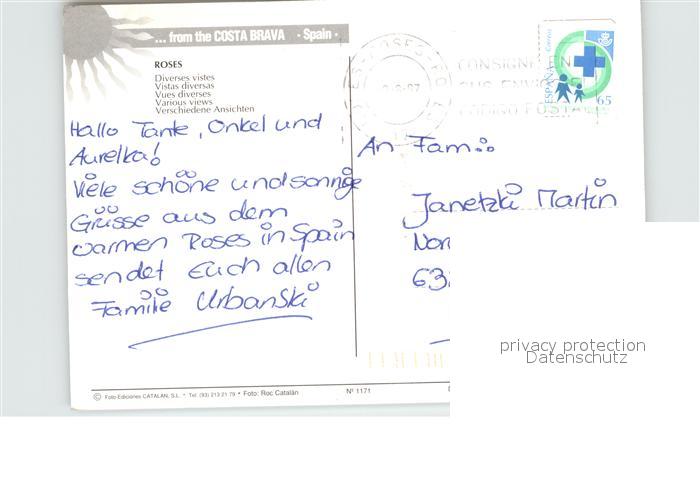 ... from the COSTA BRAVA - Spain -
ROSES
Diverses vistes
Vistas diversas
Vues diverses
Various views
Verschiedene Ansichten
Hallo Tante, Onkel und
Aurelka!
Viele schöne und sonnige
Grüsse aus dem
warmen Roses in Spain
sendet Euch allen
Familie Urbanski
ROSES
CONSIGNE EN
SUS ENVIOS
CODIGO POSTAL
ESPAÑA
Correos
65
An Fam.:
Janetzki Martin
Nor
63
privacy protection
Datenschutz
© Foto-Ediciones CATALÁN, S.L. * Tel. (93) 213 21 79 * Foto: Roc Catalán
Nº 1171